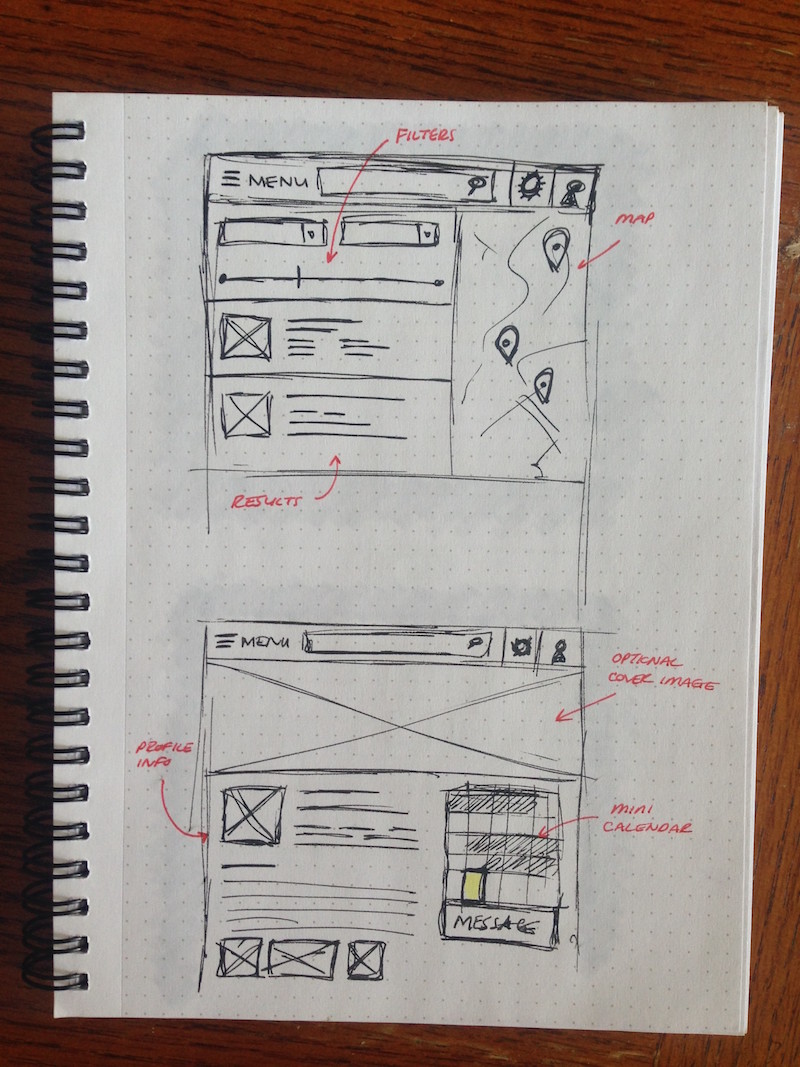 FILTERS
MENU
MAP
RESULTS
MENU
OPTIONAL
COVER IMAGE
PROFILE
INFO
MINI
CALENDAR
MESSAGE